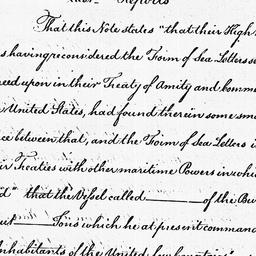 That this Note states "that their High
having reconsidered the Form of Sea Letters
upon in their Treaty of Amity and
United States, had found therein some
between that, and the Form of Sea Letters
Treaties with other maritime Powers in
" that the Vessel called ——— of the
——— Tons which he at present
Inhabitants of the United